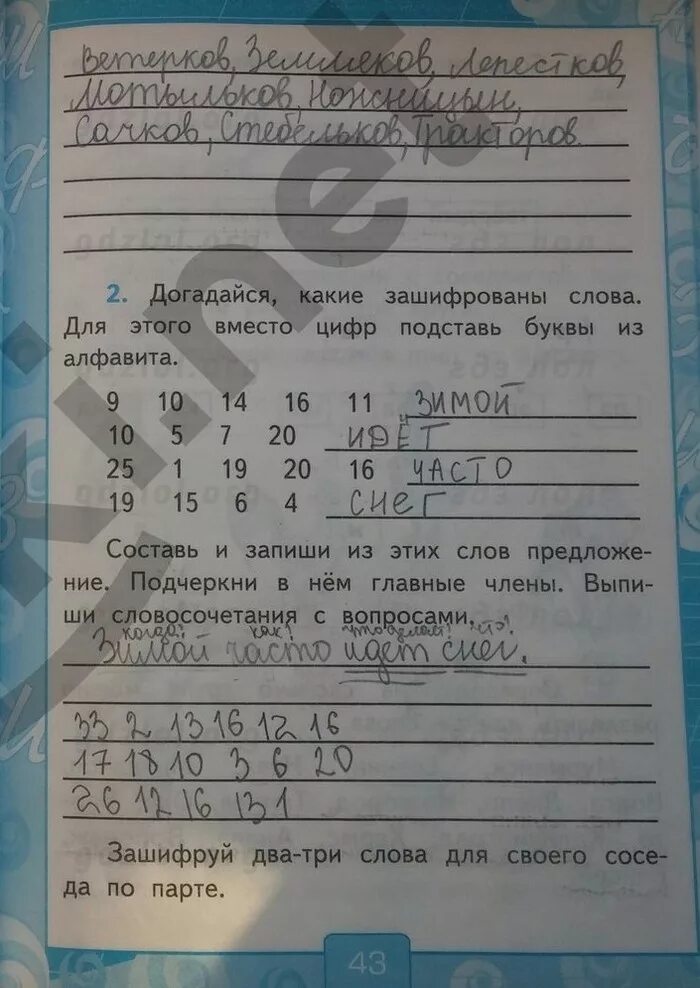 Ветерков, Земляков, Лепестков,
Мотыльков, Ножницын,
Сачков, Стебельков, Тракторов.
2. Догадайся, какие зашифрованы слова.
Для этого вместо цифр подставь буквы из
алфавита.
9 10 14 16 11 ЗИМОЙ
10 5 7 20 ИДЁТ
25 1 19 20 16 ЧАСТО
19 15 6 4 СНЕГ
Составь и запиши из этих слов предложе-
ние. Подчеркни в нём главные члены. Выпи-
ши словосочетания с вопросами.
когда? как? что делает? что?
Зимой часто идет снег.
33 2 13 16 12 16
17 18 10 3 6 20
26 12 16 13 1
Зашифруй два-три слова для своего сосе-
да по парте.
43